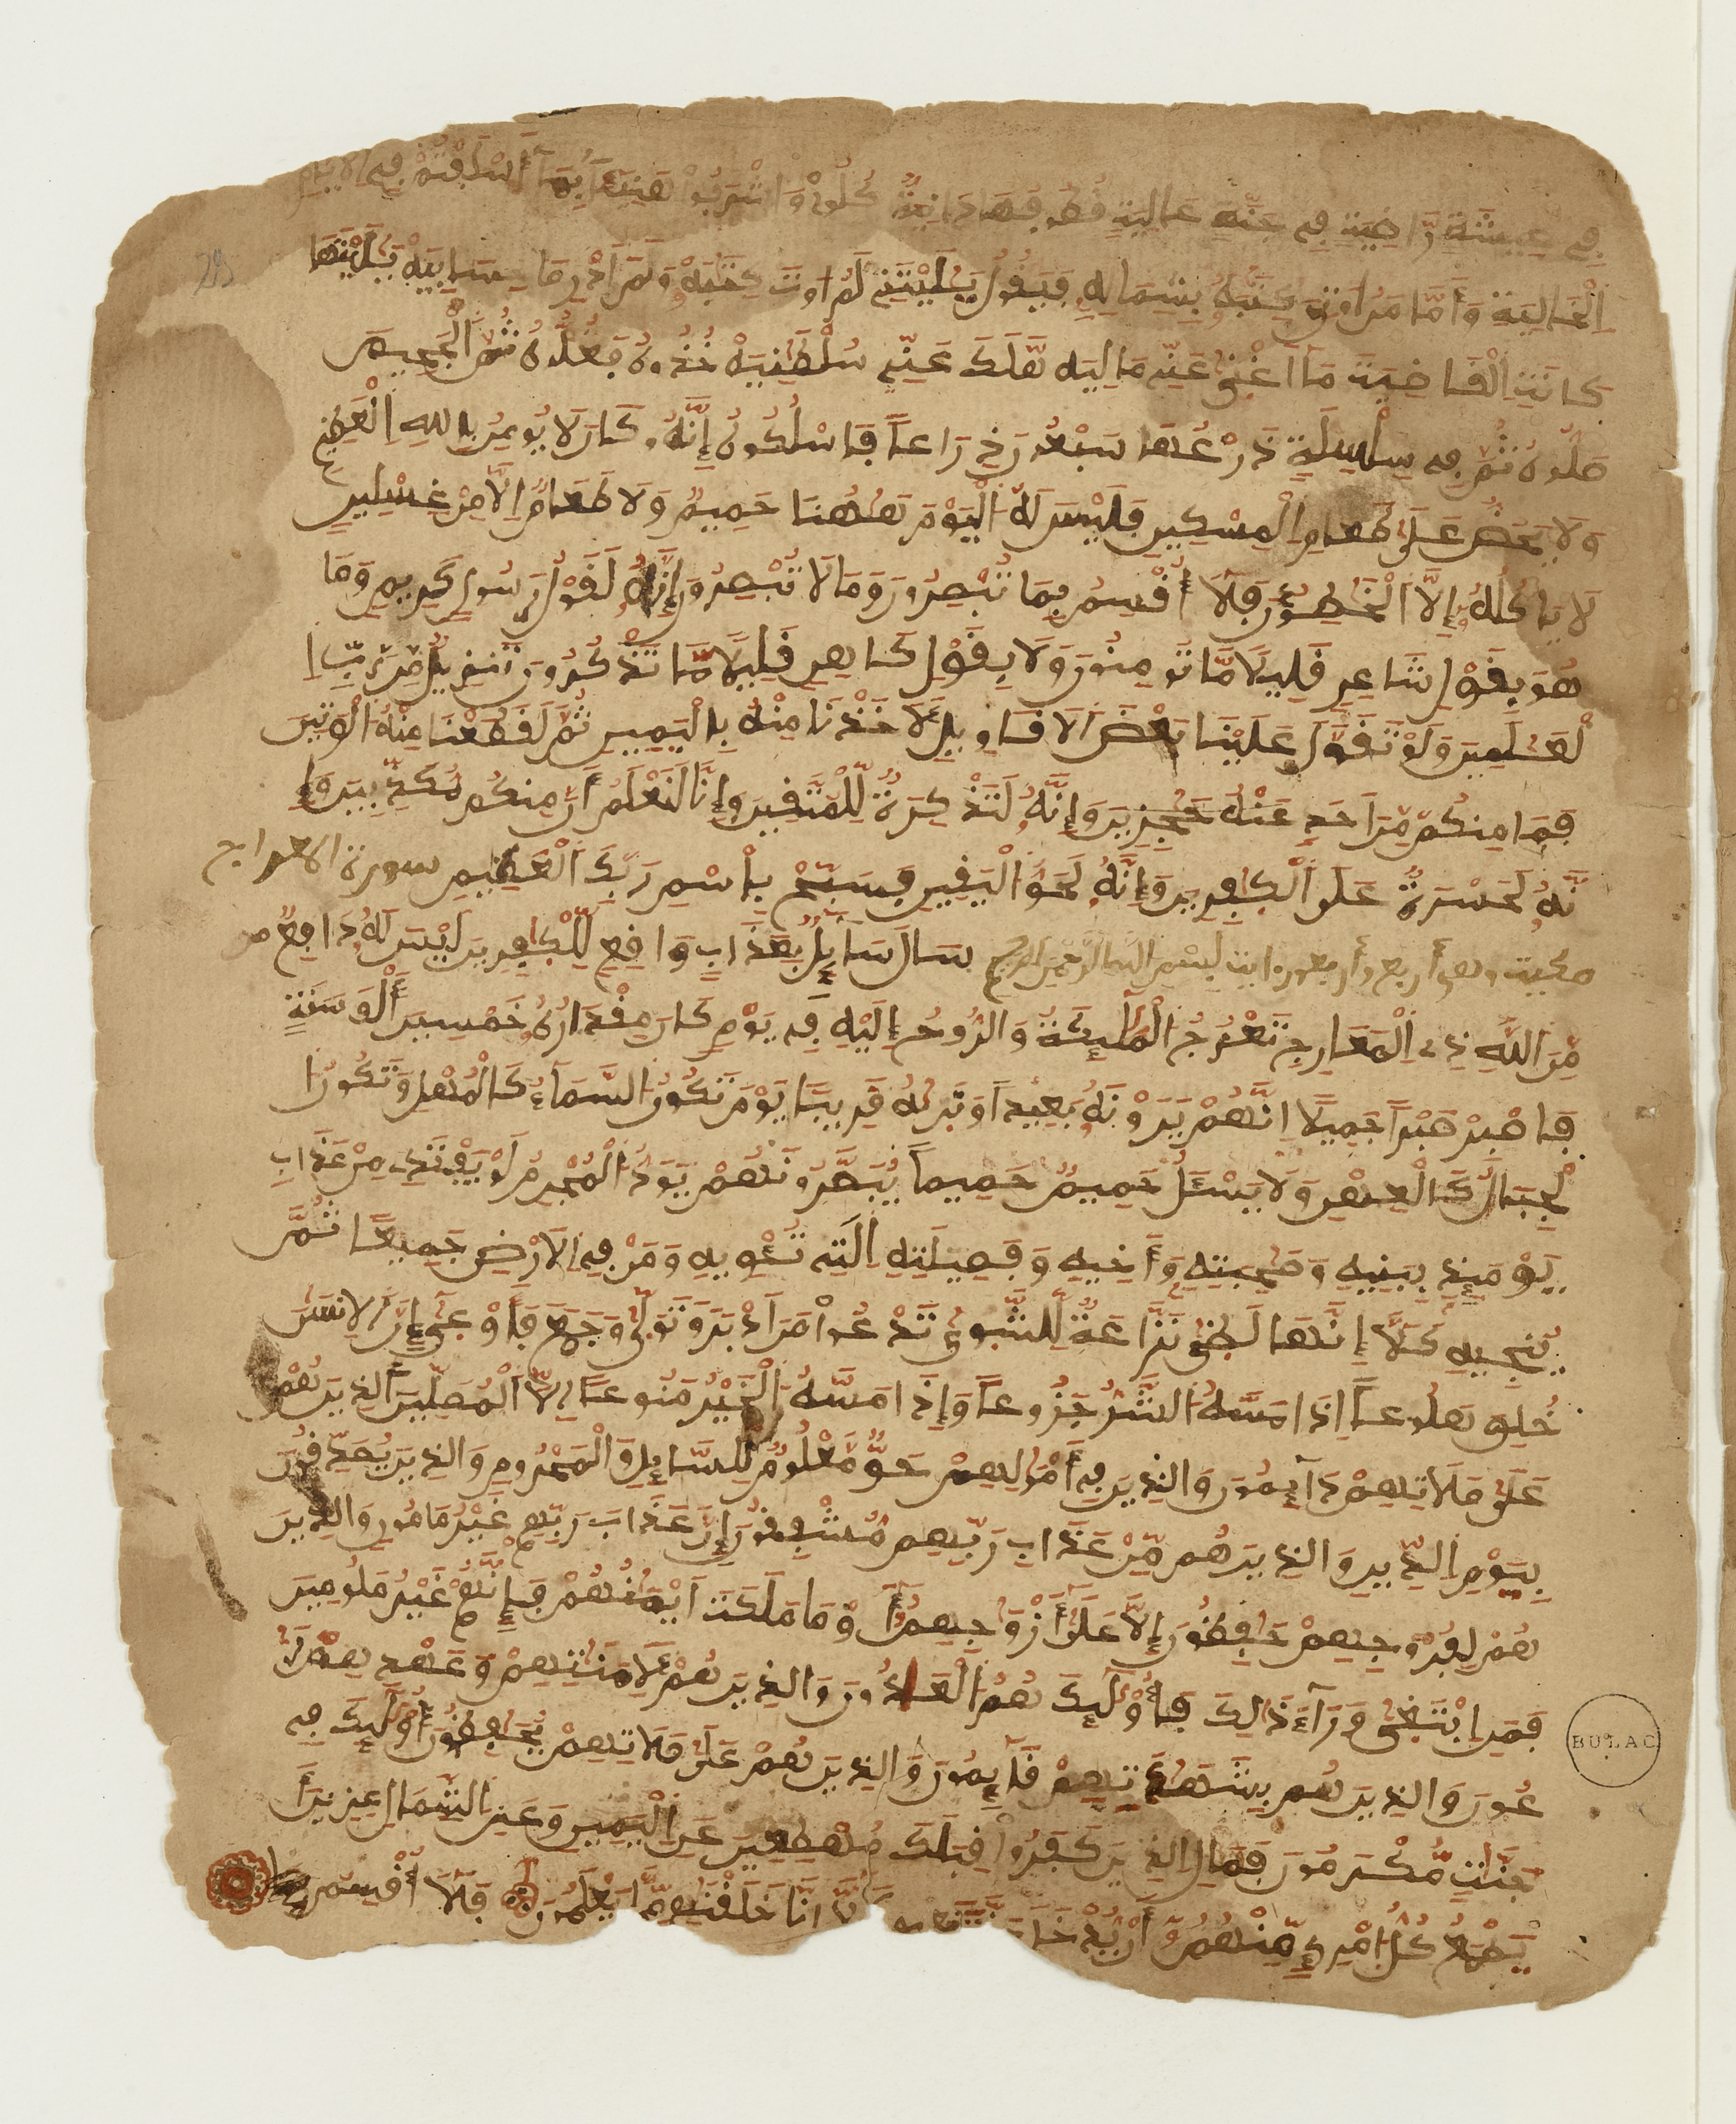 فِے عِيشَةٖ رَّاضِيَةٖ فِے جَنَّةٍ عَالِيَةٖ قُطُوفُهَا دَانِيَةٞ كُلُواْ وَاشْرَبُواْ هَنِيٓـَٔاۢ بِمَآ أَسْلَفْتُمْ فِے اِلَايَّامِ
اِ۬لْخَالِيَةِ وَأَمَّا مَنُ ا۟وتِيَ كِتَٰبَهُۥ بِشِمَالِهِۦ فَيَقُولُ يَٰلَيْتَنِے لَمُ ا۟وتَ كِتَٰبِيَهْ وَلَمَ اَدْرِ مَا حِسَابِيَهْ يَٰلَيْتَهَا
كَانَتِ اِ۬لْقَاضِيَةَ مَآ أَغْنَىٰ عَنِّے مَالِيَه هَّلَكَ عَنِّے سُلْطَٰنِيَهْ خُذُوهُ فَغُلُّوهُ ثُمَّ اَ۬لْجَحِيمَ
صَلُّوهُ ثُمَّ فِے سِلْسِلَةٖ ذَرْعُهَا سَبْعُونَ ذِرَاعاٗ فَاسْلُكُوهُ إِنَّهُۥ كَانَ لَا يُومِنُ بِاللهِ اِ۬لْعَظِيمِ
وَلَا يَحُضُّ عَلَىٰ طَعَامِ اِ۬لْمِسْكِينِ فَلَيْسَ لَهُ اُ۬لْيَوْمَ هَٰهُنَا حَمِيمٞ وَلَا طَعَامٌ اِلَّا مِنْ غِسْلِينٖ
لَّا يَاكُلُهُۥٓ إِلَّا اَ۬لْخَٰطِـُٔونَ فَلَآ أُقْسِمُ بِمَا تُبْصِرُونَ وَمَا لَا تُبْصِرُونَ إِنَّهُۥ لَقَوْلُ رَسُولٖ كَرِيمٖ وَمَا
هُوَ بِقَوْلِ شَاعِرٖ قَلِيلاٗ مَّا تُومِنُونَ وَلَا بِقَوْلِ كَاهِنٖ قَلِيلاٗ مَّا تَذَّكَّرُونَ تَنزِيلٞ مِّن رَّبِّ اِ
لْعَٰلَمِينَ وَلَوْ تَقَوَّلَ عَلَيْنَا بَعْضَ اَ۬لَاقَاوِيلِ لَأَخَذْنَا مِنْهُ بِالْيَمِينِ ثُمَّ لَقَطَعْنَا مِنْهُ اُ۬لْوَتِينَ
فَمَا مِنكُم مِّنَ اَحَدٍ عَنْهُ حَٰجِزِينَ وَإِنَّهُۥ لَتَذْكِرَةٞ لِّلْمُتَّقِينَ وَإِنَّا لَنَعْلَمُ أَنَّ مِنكُم مُّكَذِّبِينَ وَإِ
نَّهُۥ لَحَسْرَةٌ عَلَى اَ۬لْكٰ۪فِرِينَ وَإِنَّهُۥ لَحَقُّ اُ۬لْيَقِينِ فَسَبِّحْ بِاسْمِ رَبِّكَ اَ۬لْعَظِيمِ سورة المعارج
مكية وهي أربع وأربعون اية بسم الله الرحمن الرحيم سَالَ سَآئِلُۢ بِعَذَابٖ وَاقِعٖ لِّلْكٰ۪فِرِينَ لَيْسَ لَهُۥ دَافِعٞ
مِّنَ اَ۬للَّهِ ذِے اِ۬لْمَعَارِجِ تَعْرُجُ اُ۬لْمَلَٰٓئِكَةُ وَالرُّوحُ إِلَيْهِ فِے يَوْمٖ كَانَ مِقْدَارُهُۥ خَمْسِينَ أَلْفَ سَنَةٖ
فَاصْبِرْ صَبْراٗ جَمِيلاً اِنَّهُمْ يَرَوْنَهُۥ بَعِيداٗ وَنَر۪ىٰهُ قَرِيباٗ يَوْمَ تَكُونُ اُ۬لسَّمَآءُ كَالْمُهْلِ وَتَكُونُ اُ
لْجِبَالُ كَالْعِهْنِ وَلَا يَسْـَٔلُ حَمِيمٌ حَمِيماٗ يُبَصَّرُونَهُمْ يَوَدُّ اُ۬لْمُجْرِمُ لَوْ يَفْتَدِے مِنْ عَذَابِ
يَوْمَئِذِۢ بِبَنِيهِ وَصَٰحِبَتِهِۦ وَأَخِيهِ وَفَصِيلَتِهِ اِ۬لتِے تُـْٔوِيهِ وَمَن فِے اِ۬لَارْضِ جَمِيعاٗ ثُمَّ
يُنجِيهِ كَلَّآ إِنَّهَا لَظ۪ىٰ نَزَّاعَةٞ لِّلشَّو۪ىٰ تَدْعُواْ مَنَ اَدْبَرَ وَتَوَلّ۪ىٰ وَجَمَعَ فَأَوْع۪ىٰٓ إِنَّ اَ۬لِانسَٰنَ
خُلِقَ هَلُوعاً اِذَا مَسَّهُ اُ۬لشَّرُّ جَزُوعاٗ وَإِذَا مَسَّهُ اُ۬لْخَيْرُ مَنُوعاً اِلَّا اَ۬لْمُصَلِّينَ اَ۬لذِينَ هُمْ
عَلَىٰ صَلَاتِهِمْ دَآئِمُونَ وَالذِينَ فِےٓ أَمْوَٰلِهِمْ حَقّٞ مَّعْلُومٞ لِّلسَّآئِلِ وَالْمَحْرُومِ وَالذِينَ يُصَدِّقُونَ
بِيَوْمِ اِ۬لدِّينِ وَالذِينَ هُم مِّنْ عَذَابِ رَبِّهِم مُّشْفِقُونَ إِنَّ عَذَابَ رَبِّهِمْ غَيْرُ مَامُونٖ وَالذِينَ
هُمْ لِفُرُوجِهِمْ حَٰفِظُونَ إِلَّا عَلَىٰٓ أَزْوَٰجِهِمُۥٓ أَوْ مَا مَلَكَتَ اَيْمَٰنُهُمْ فَإِنَّهُمْ غَيْرُ مَلُومِينَ
فَمَنِ اِ۪بْتَغ۪ىٰ وَرَآءَ ذَٰلِكَ فَأُوْلَٰٓئِكَ هُمُ اُ۬لْعَادُونَ وَالذِينَ هُمْ لِأَمَٰنَٰتِهِمْ وَعَهْدِهِمْ رَٰ
عُونَ وَالذِينَ هُم بِشَهَٰدَتِهِمْ قَآئِمُونَ وَالذِينَ هُمْ عَلَىٰ صَلَاتِهِمْ يُحَافِظُونَ أُوْلَٰٓئِكَ فِے
جَنَّٰتٖ مُّكْرَمُونَ فَمَالِ اِ۬لذِينَ كَفَرُواْ قِبَلَكَ مُهْطِعِينَ عَنِ اِ۬لْيَمِينِ وَعَنِ اِ۬لشِّمَالِ عِزِينَ أَ
يَطْمَعُ كُلُّ اُ۪مْرِےٕٖ مِّنْهُمُۥٓ أَنْ يُّدْخَلَ جَنَّةَ نَعِيمٖ كَلَّآ إِنَّا خَلَقْنَٰهُم مِّمَّا يَعْلَمُونَ فَلَآ أُقْسِمُ
BULAC